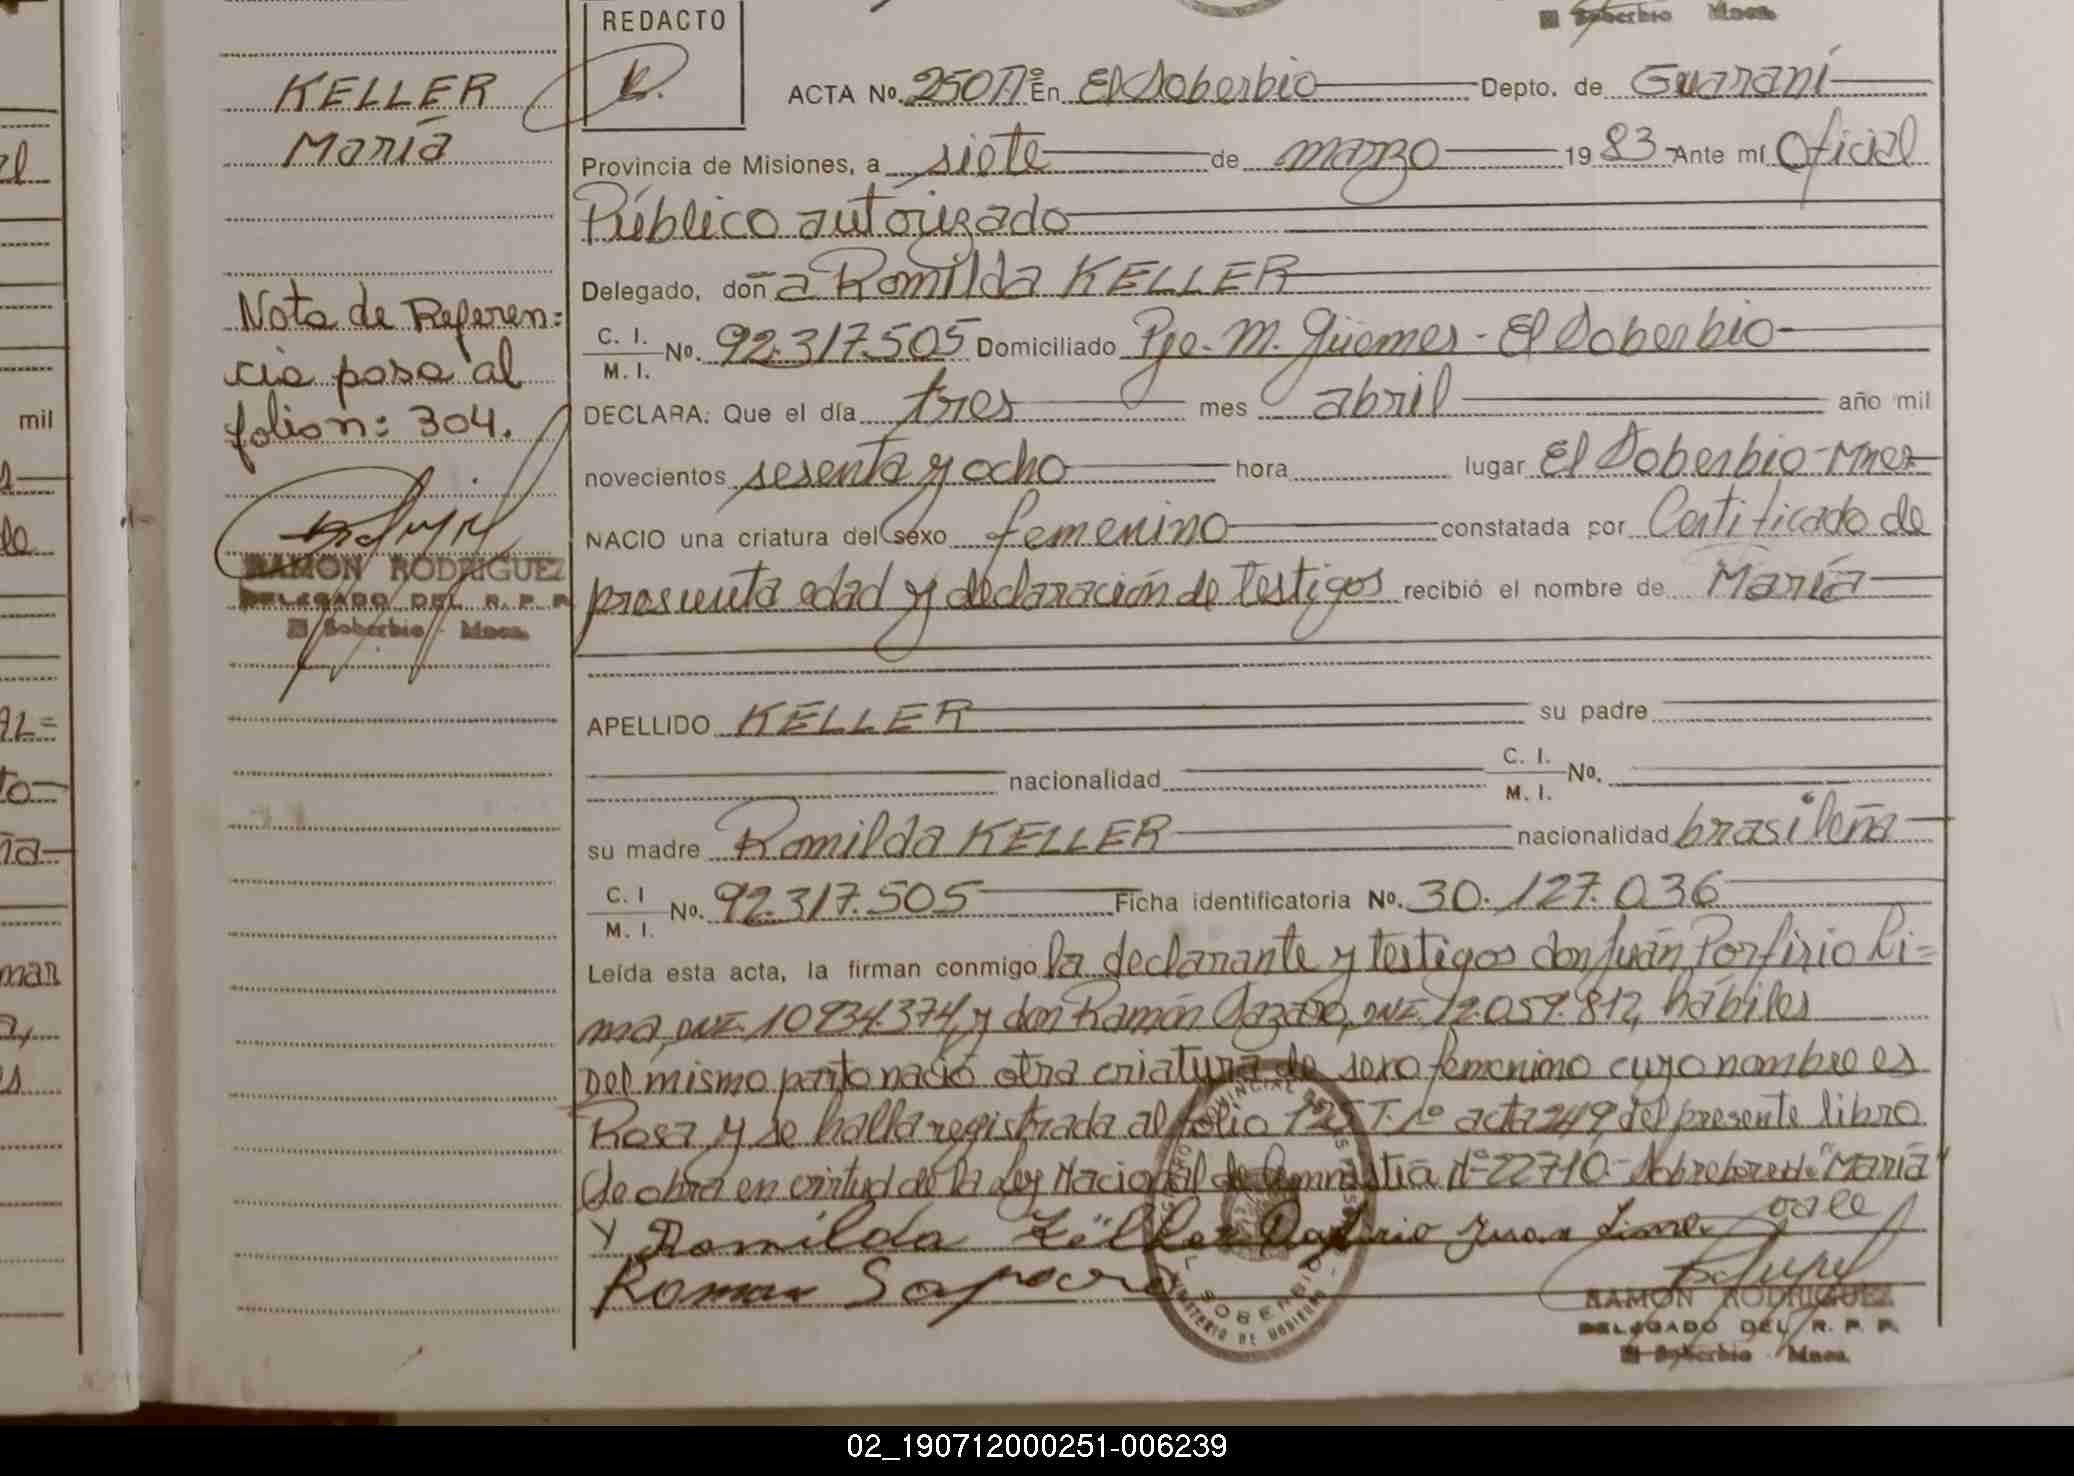 REDACTO
El Soberbio Mnes.
KELLER
María
ACTA Nº. 250 Tº 1º En El Soberbio Depto. de Guaraní
Provincia de Misiones, a siete de marzo 1983 Ante mí Oficial
Público autorizado
Delegado, doña Romilda KELLER
C. I.
M. I. No. 92.317.505 Domiciliado Pje. M. Güemes - El Soberbio
DECLARA: Que el día tres mes abril año mil
novecientos sesenta y ocho hora lugar El Soberbio - Mnes
NACIO una criatura del sexo femenino constatada por Certificado de
presunta edad y declaración de testigos recibió el nombre de María
APELLIDO KELLER su padre
nacionalidad C. I.
M. I. No.
su madre Romilda KELLER nacionalidad brasileña
C. I
M. I. No. 92.317.505 Ficha identificatoria No. 30.127.036
Leída esta acta, la firman conmigo la declarante y testigos don Juan Porfirio Li=
ma, DNI. 10.934.374, y don Ramón DNI. 12.059.812, hábiles
Del mismo parto nació otra criatura de sexo femenino cuyo nombre es
Rosa y se halla registrada al folio 125 T. 1º acta 249, del presente libro
Se obra en virtud de la Ley Nacional de Amnistía Nº 22710.- Sobreborrado "María"
vale
Romilda Keller Porfirio Juan Lima
Roman
RAMON RODRIGUEZ
DELEGADO DEL R. P. P.
El Soberbio - Mnes.
Nota de Referen=
cia pasa al
folio n: 304.
RAMON RODRIGUEZ
DELEGADO DEL R. P. P.
El Soberbio - Mnes.
mil
02_190712000251-006239